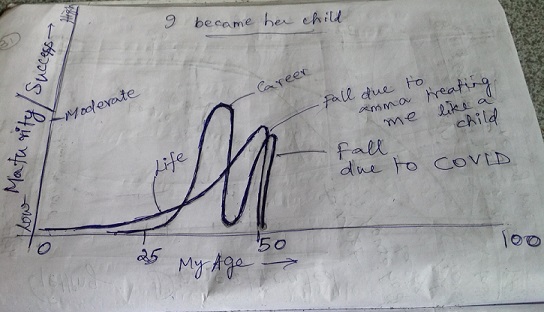 I became her child
High
Low Maturity / Success →
Moderate
Career
Fall due to
amma treating
me like a
child
Life
Fall
due to COVID
0
25
50
100
My Age →